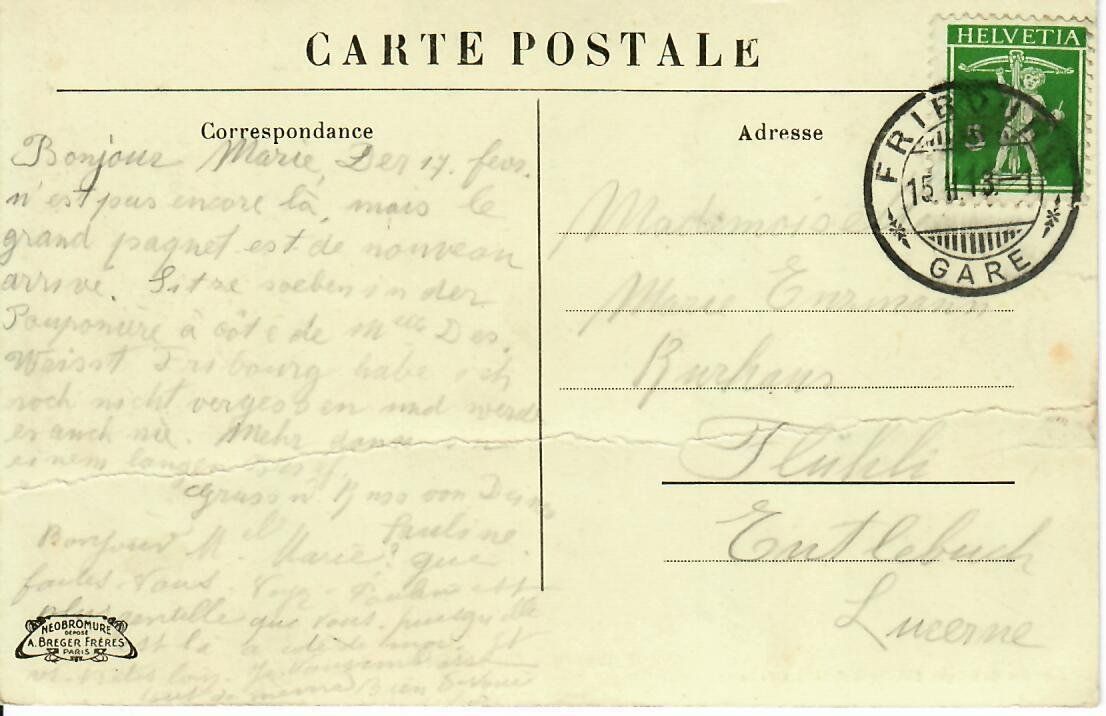 CARTE POSTALE
HELVETIA
5
FRIBOURG
15. II. 13 – 1
GARE
Correspondance
Bonjour Marie, Der 17. fevr.
n'est pas encore là, mais le
grand paquet est de nouveau
arrivé. Sitze soeben in der
Pouponière à côté de Mlle Des.
Weisst Fribourg habe ich
noch nicht vergessen und werde
es auch nie. Mehr dann in
einem langen
Gruss u Kuss von Deiner
Pauline
Bonjour M. Marie? que
faites-vous.
gentille que vous, puisqu'elle
est là à côté de moi
Adresse
Mademoiselle
Marie Enzmann
Kurhaus
Flühli
Entlebuch
Lucerne
NEOBROMURE
DEPOSÉ
A. BREGER FRÈRES
PARIS